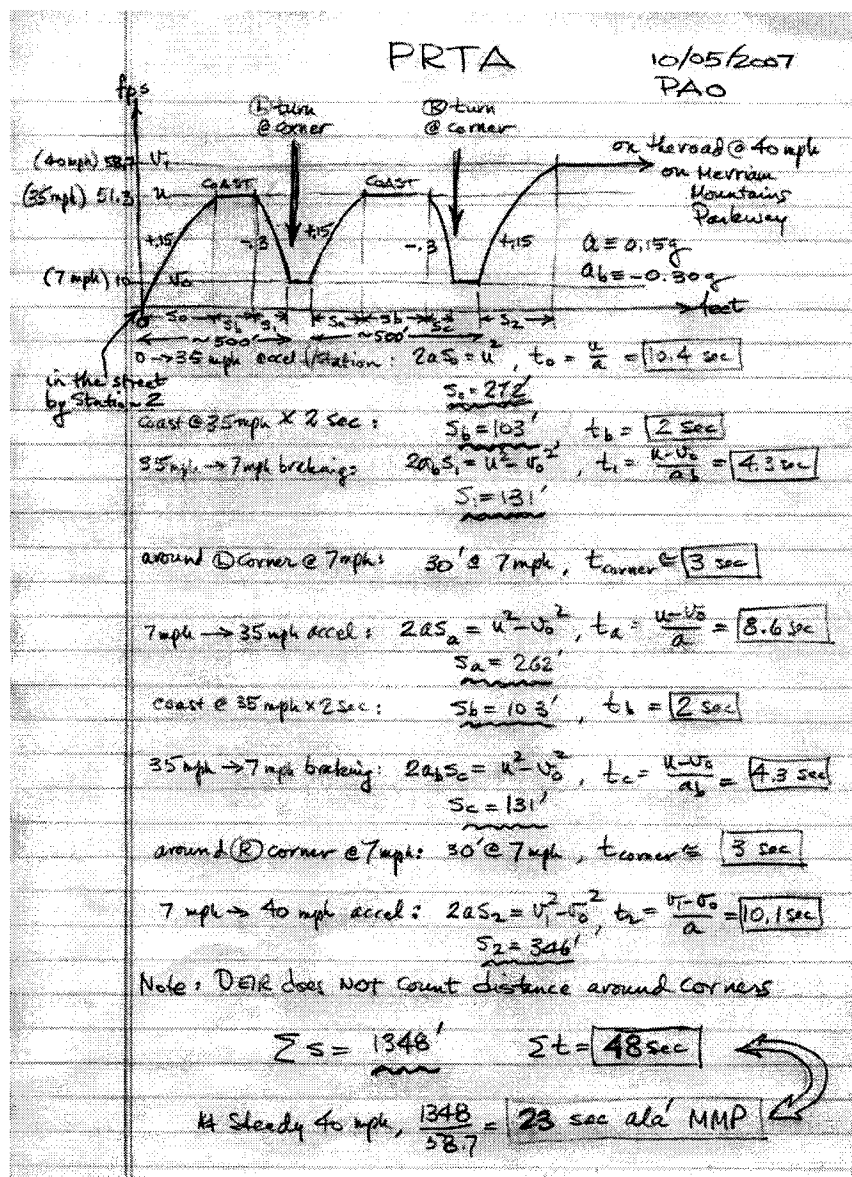 PRTA
10/05/2007
PAO
fps
Ⓛ turn
@ corner
Ⓡ turn
@ corner
on the road @ 40 mph
on Merriam
Mountains
Parkway
(40 mph) 58.7 V₁
(35 mph) 51.3 u
COAST
COAST
+.15
-.3
+.15
-.3
+.15
a ≡ 0.15g
a_b ≡ -0.30g
(7 mph) 10 v₀
feet
0
S₀ S_b S₁ S_a S_b S_c S₂
~500' ~500'
in the street
by Station 2
0→35 mph accel f/station: 2aS₀ = u², t₀ = u/a = 10.4 sec
S₀ = 272'
coast @ 35 mph × 2 sec: S_b = 103' t_b = 2 sec
35 mph → 7 mph braking: 2a_b S₁ = u² - v₀², t₁ = (u-v₀)/a_b = 4.3 sec
S₁ = 131'
around Ⓛ corner @ 7 mph: 30' @ 7 mph, t_corner ≅ 3 sec
7 mph → 35 mph accel: 2aS_a = u² - v₀², t_a = (u-v₀)/a = 8.6 sec
S_a = 262'
coast @ 35 mph × 2 sec: S_b = 103', t_b = 2 sec
35 mph → 7 mph braking: 2a_b S_c = u² - v₀², t_c = (u-v₀)/a_b = 4.3 sec
S_c = 131'
around Ⓡ corner @ 7 mph: 30' @ 7 mph, t_corner ≅ 3 sec
7 mph → 40 mph accel: 2aS₂ = v₁² - v₀², t₂ = (v₁-v₀)/a = 10.1 sec
S₂ = 346'
Note: DEIR does NOT count distance around corners
Σs = 1348' Σt = 48 sec
@ Steady 40 mph, 1348/58.7 = 23 sec alá MMP